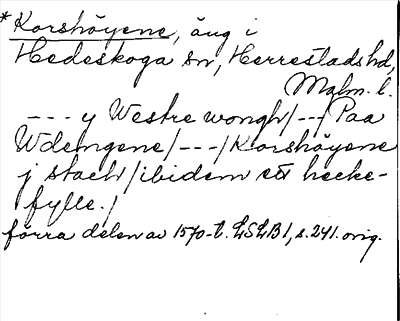 *Korshöyene, äng i
Hedeskoga sn, Herrestads hd,
Malm. l.
--- y Westre wongh/--/Paa
Wdengene/---/Korshöyene
j stach/ibidem ett hecke-
fylle./
förra delen av 1570-t. LSLB1, s. 241. orig.